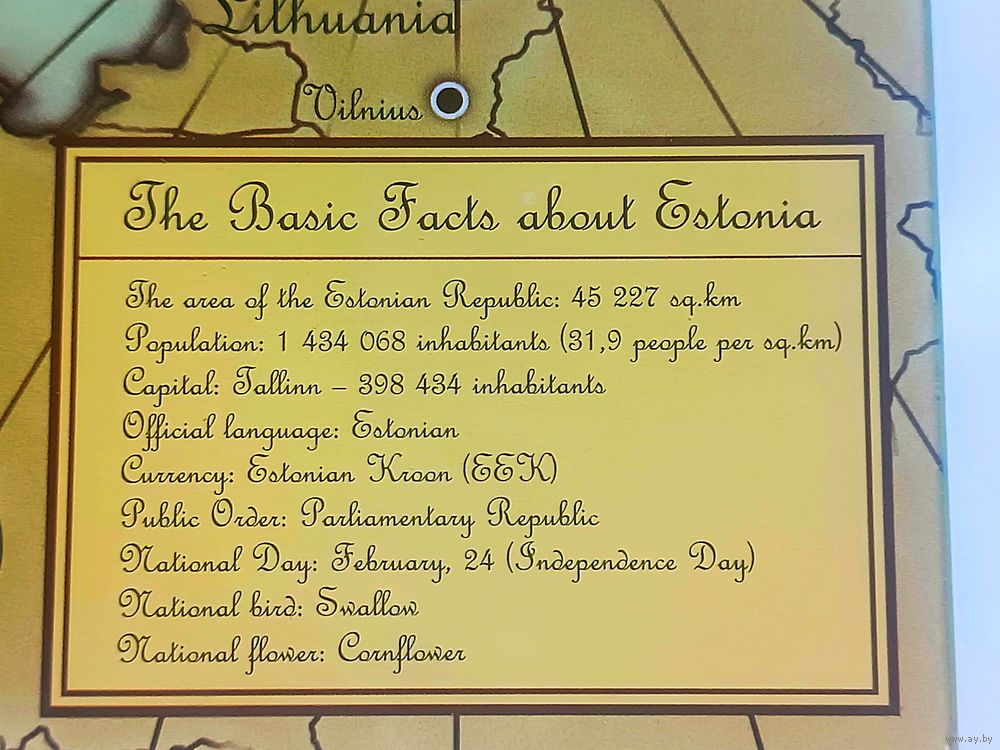 Lithuania
Vilnius
The Basic Facts about Estonia
The area of the Estonian Republic: 45 227 sq.km
Population: 1 434 068 inhabitants (31,9 people per sq.km)
Capital: Tallinn – 398 434 inhabitants
Official language: Estonian
Currency: Estonian Kroon (EEK)
Public Order: Parliamentary Republic
National Day: February, 24 (Independence Day)
National bird: Swallow
National flower: Cornflower
www.ay.by